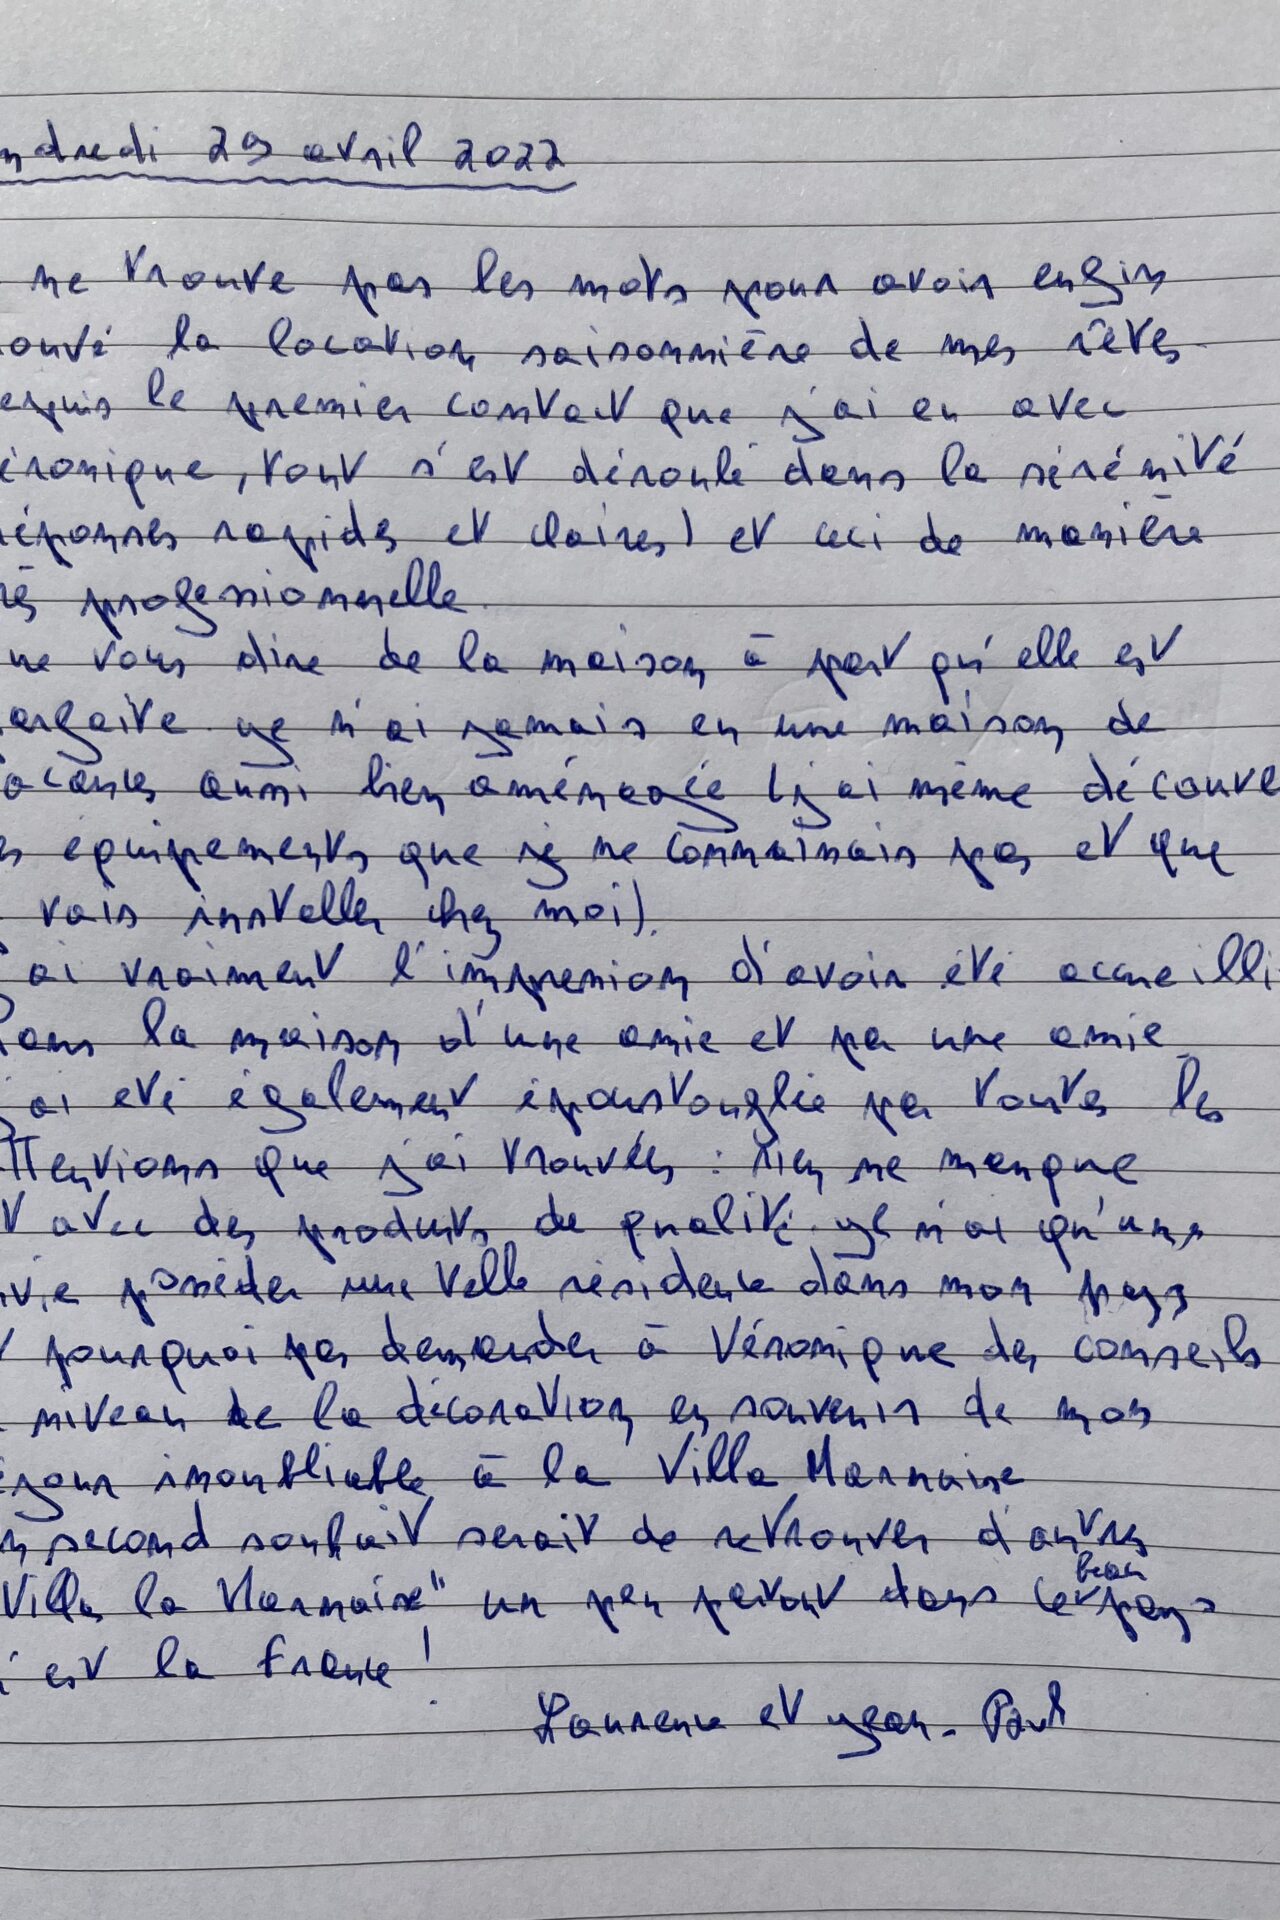 ndredi 29 avril 2022
ne trouve pas les mots pour avoir enfin
ouvé la location saisonnière de mes rêves.
epuis le premier contact que j'ai eu avec
éronique, tout s'est déroulé dans la sérénité
réponses rapides et claires) et ceci de manière
rès professionnelle.
ue vous dire de la maison à part qu'elle est
arfaite. Je n'ai jamais eu une maison de
acances aussi bien aménagée (j'ai même découve
s équipements que je ne connaissais pas et que
vais installer chez moi).
J'ai vraiment l'impression d'avoir été accueilli
dans la maison d'une amie et par une amie.
j'ai été également époustouflée par toutes les
ttentions que j'ai trouvées : rien ne manque
t avec des produits de qualité. Je n'ai qu'une
vie posséder une telle résidence dans mon pays
t pourquoi pas demander à Véronique des conseils
niveau de la décoration en souvenir de mon
éjour inoubliable à la Villa Marnaise
n second souhait serait de retrouver d'autres
Villa la Marnaise" un peu partout dans ce beau pays
est la France !
Laurence et Jean-Paul